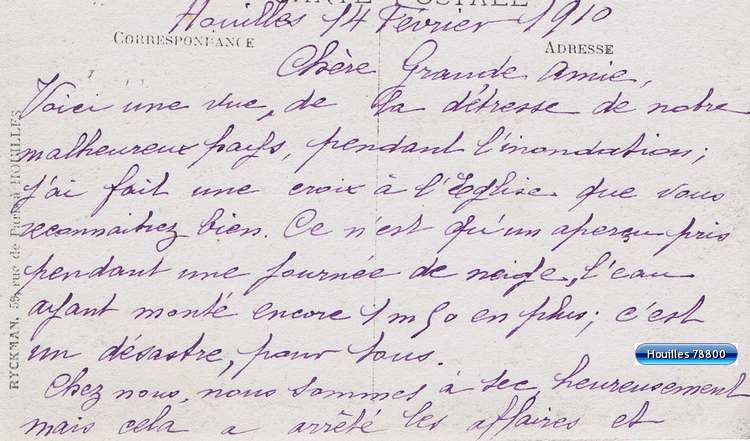 CARTE POSTALE
Houilles 14 Février 1910
CORRESPONDANCE
ADRESSE
Chère Grande Amie,
Voici une vue, de la détresse de notre
malheureux pays, pendant l'inondation;
j'ai fait une croix à l'Eglise que vous
reconnaitrez bien. Ce n'est qu'un aperçu pris
pendant une journée de neige, l'eau
ayant monté encore 1m50 en plus; c'est
un désastre, pour tous.
Chez nous, nous sommes à sec, heureusement
mais cela a arrêté les affaires et
RYCKMAN, 58, rue de Paris, HOUILLES
Houilles 78800